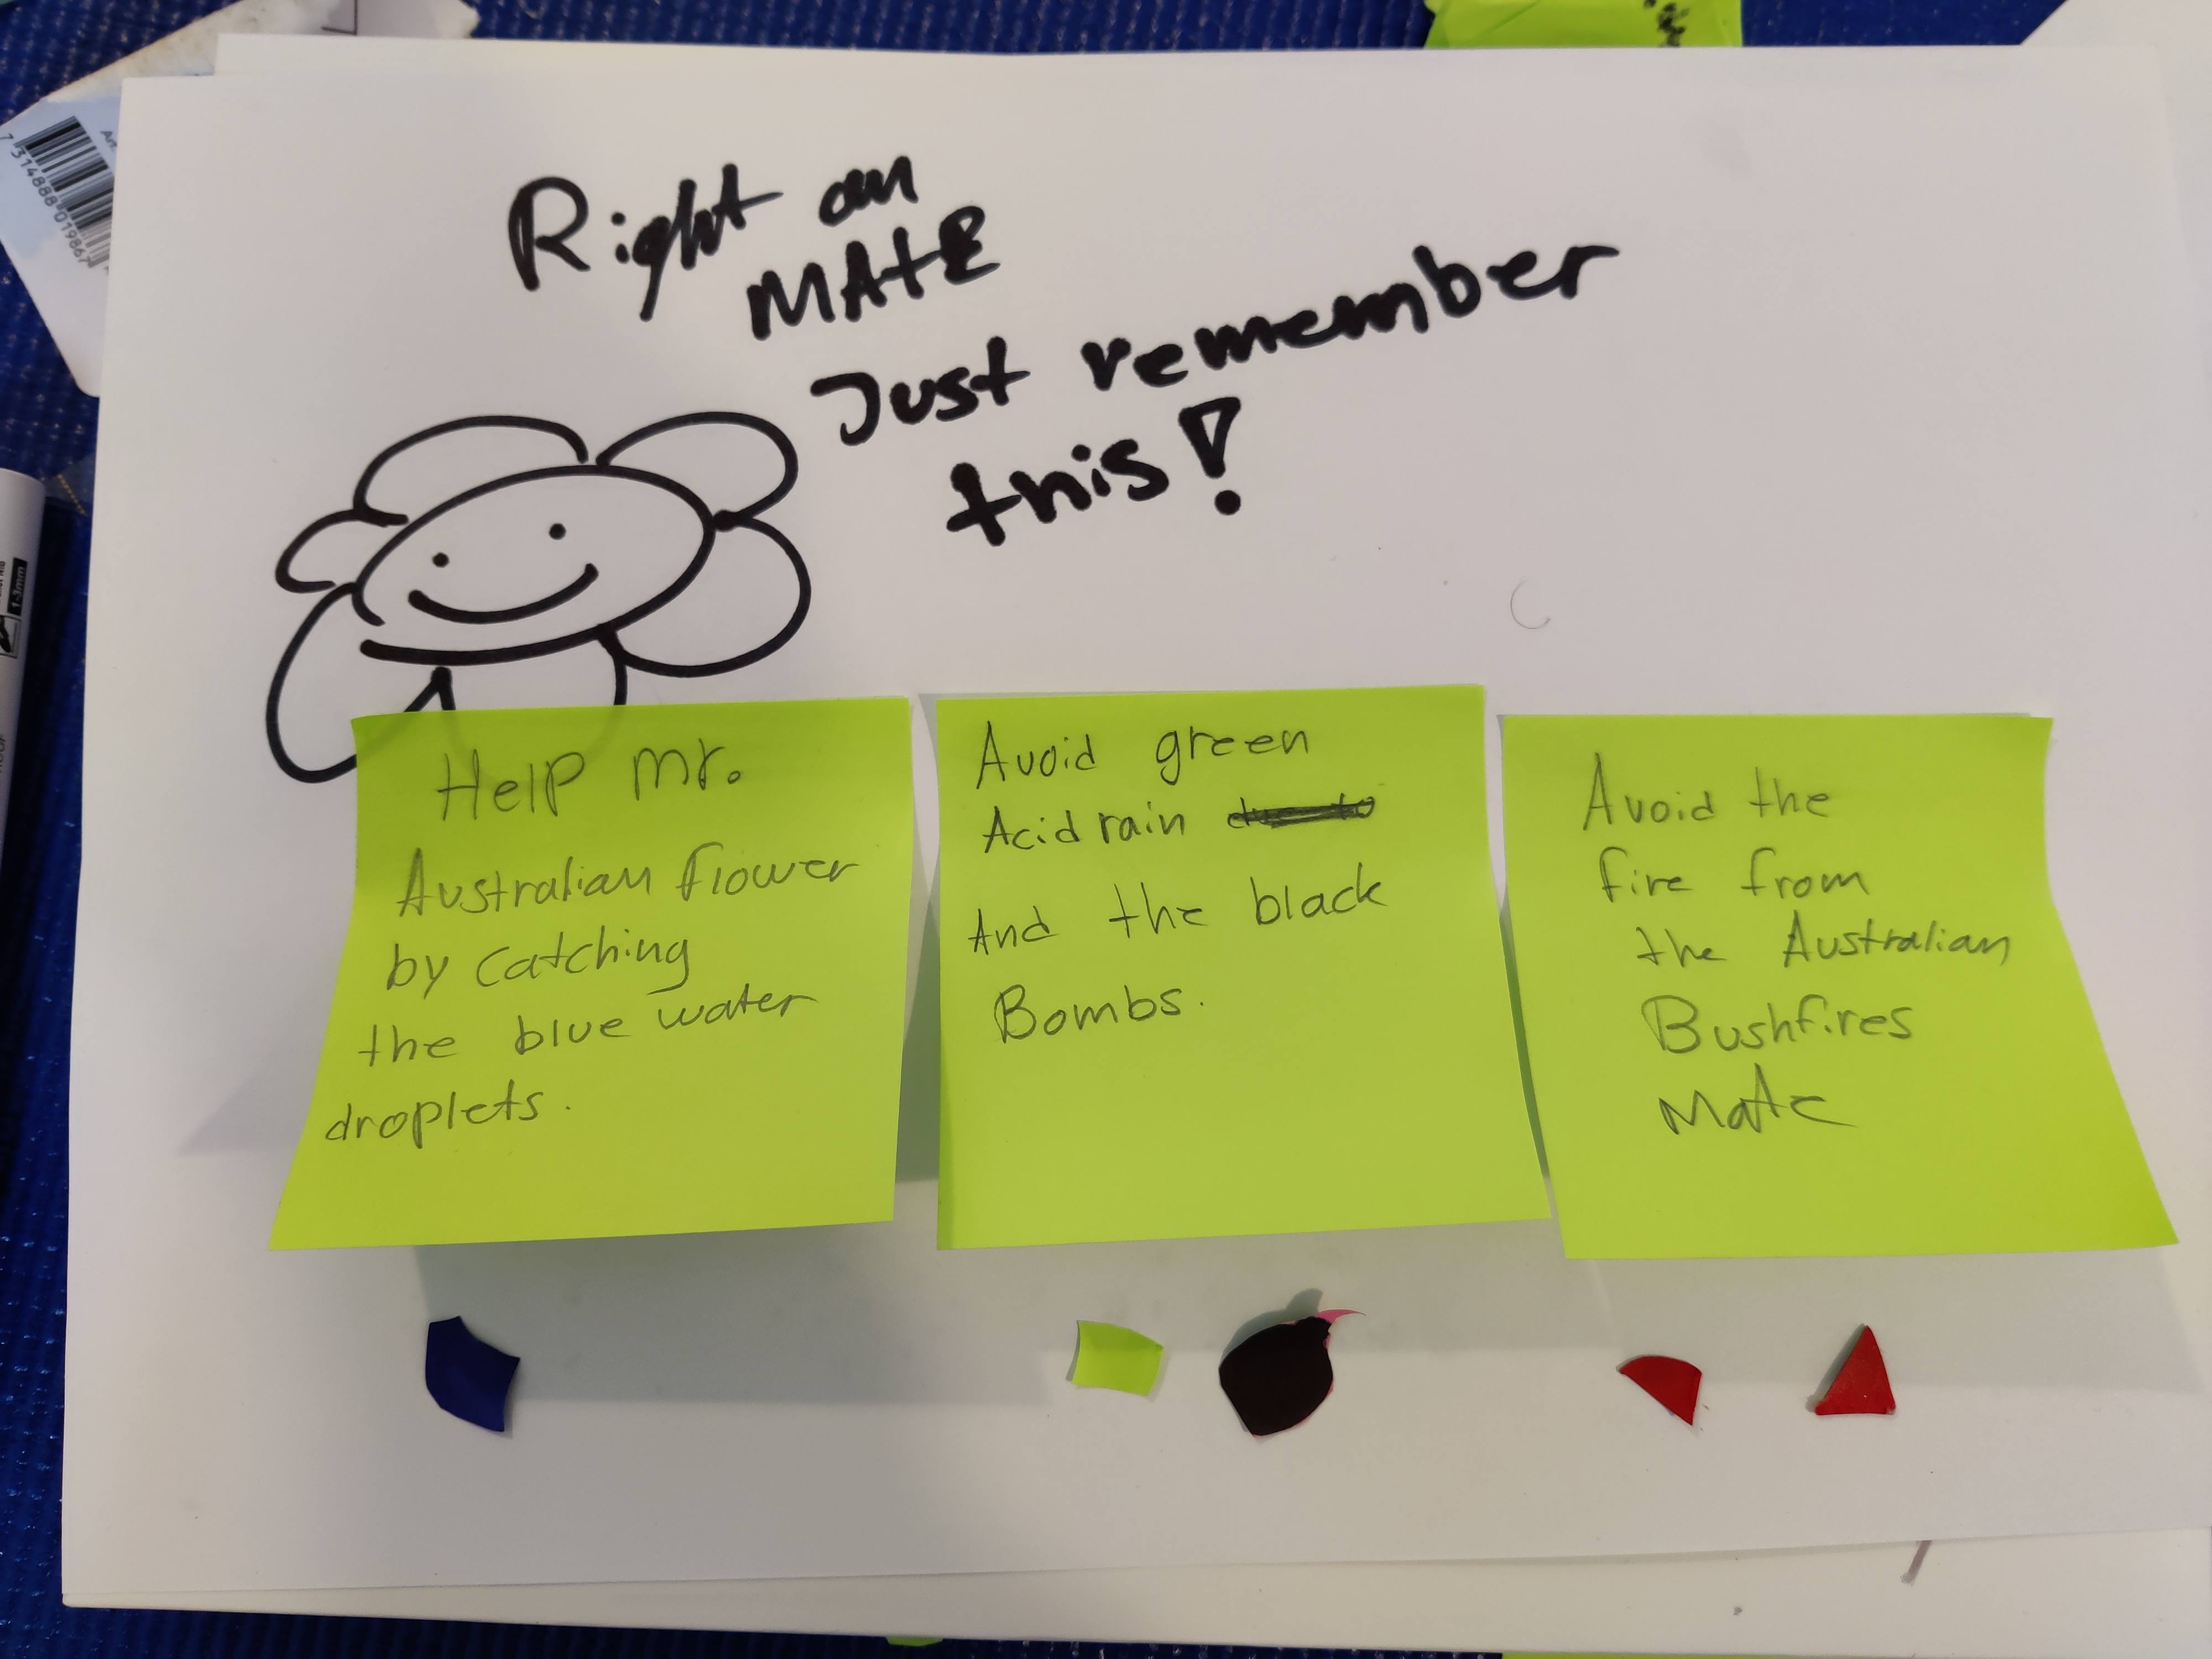 Right on
MATE
Just remember
this!
Help mr.
Australian flower
by catching
the blue water
droplets.
Avoid green
Acid rain
And the black
Bombs.
Avoid the
fire from
the Australian
Bushfires
Mate
7 314888 019867
1-3mm